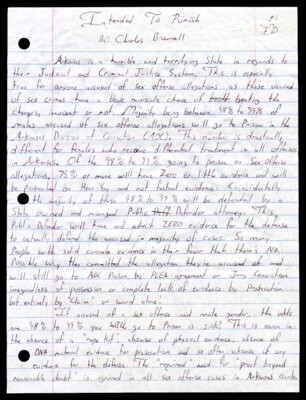 Intended To Punish
P1
ED
By: Charles Brownell
Arkansas is a terrible and terrifying State in regards to
their Judicial and Criminal Justice System. This is especially
true for anyone accused of sex offense allegations as those accused
of sex crimes have a bleak miniscule chance of beating the
charges, innocent or not. Majority being between 98% to 99% of
males accused of sex offense allegations will go to Prison in the
Arkansas Division of Correction (ADC). This number is drastically
different for females who receive differential treatment in all offenses
in Arkansas. Of the 98% to 99% going to prison on sex offense
allegations, 75% or more will have Zero or little evidence and will
be prosecuted on Hear-Say and not factual evidence. Coincidentally
the majority of these 98% to 99% will be defended by a
State owned and managed Public Defender attorney. This
Public Defender will have and admit ZERO evidence for the defense
to actually defend the accused in majority of cases. So many
People with solid concrete evidence in their favor that there's NO
Possible way they committed the allegation they're accused of and
will still go to ADC Prison by PLEA agreement or Jury Conviction
irregardless of possession or complete lack of evidence by Prosecution
but entirely by "Claim" or word alone.
If accused of a sex offense and male gender, the odds
are 98% to 99% you WILL go to Prison is sick! This is even in
the absence of a rape kit, absence of physical evidence, absence of
DNA material evidence for prosecution and so often absence of any
evidence for the defense. The "required" need for "proof beyond
reasonable doubt" is ignored in all sex offense cases in Arkansas courts.